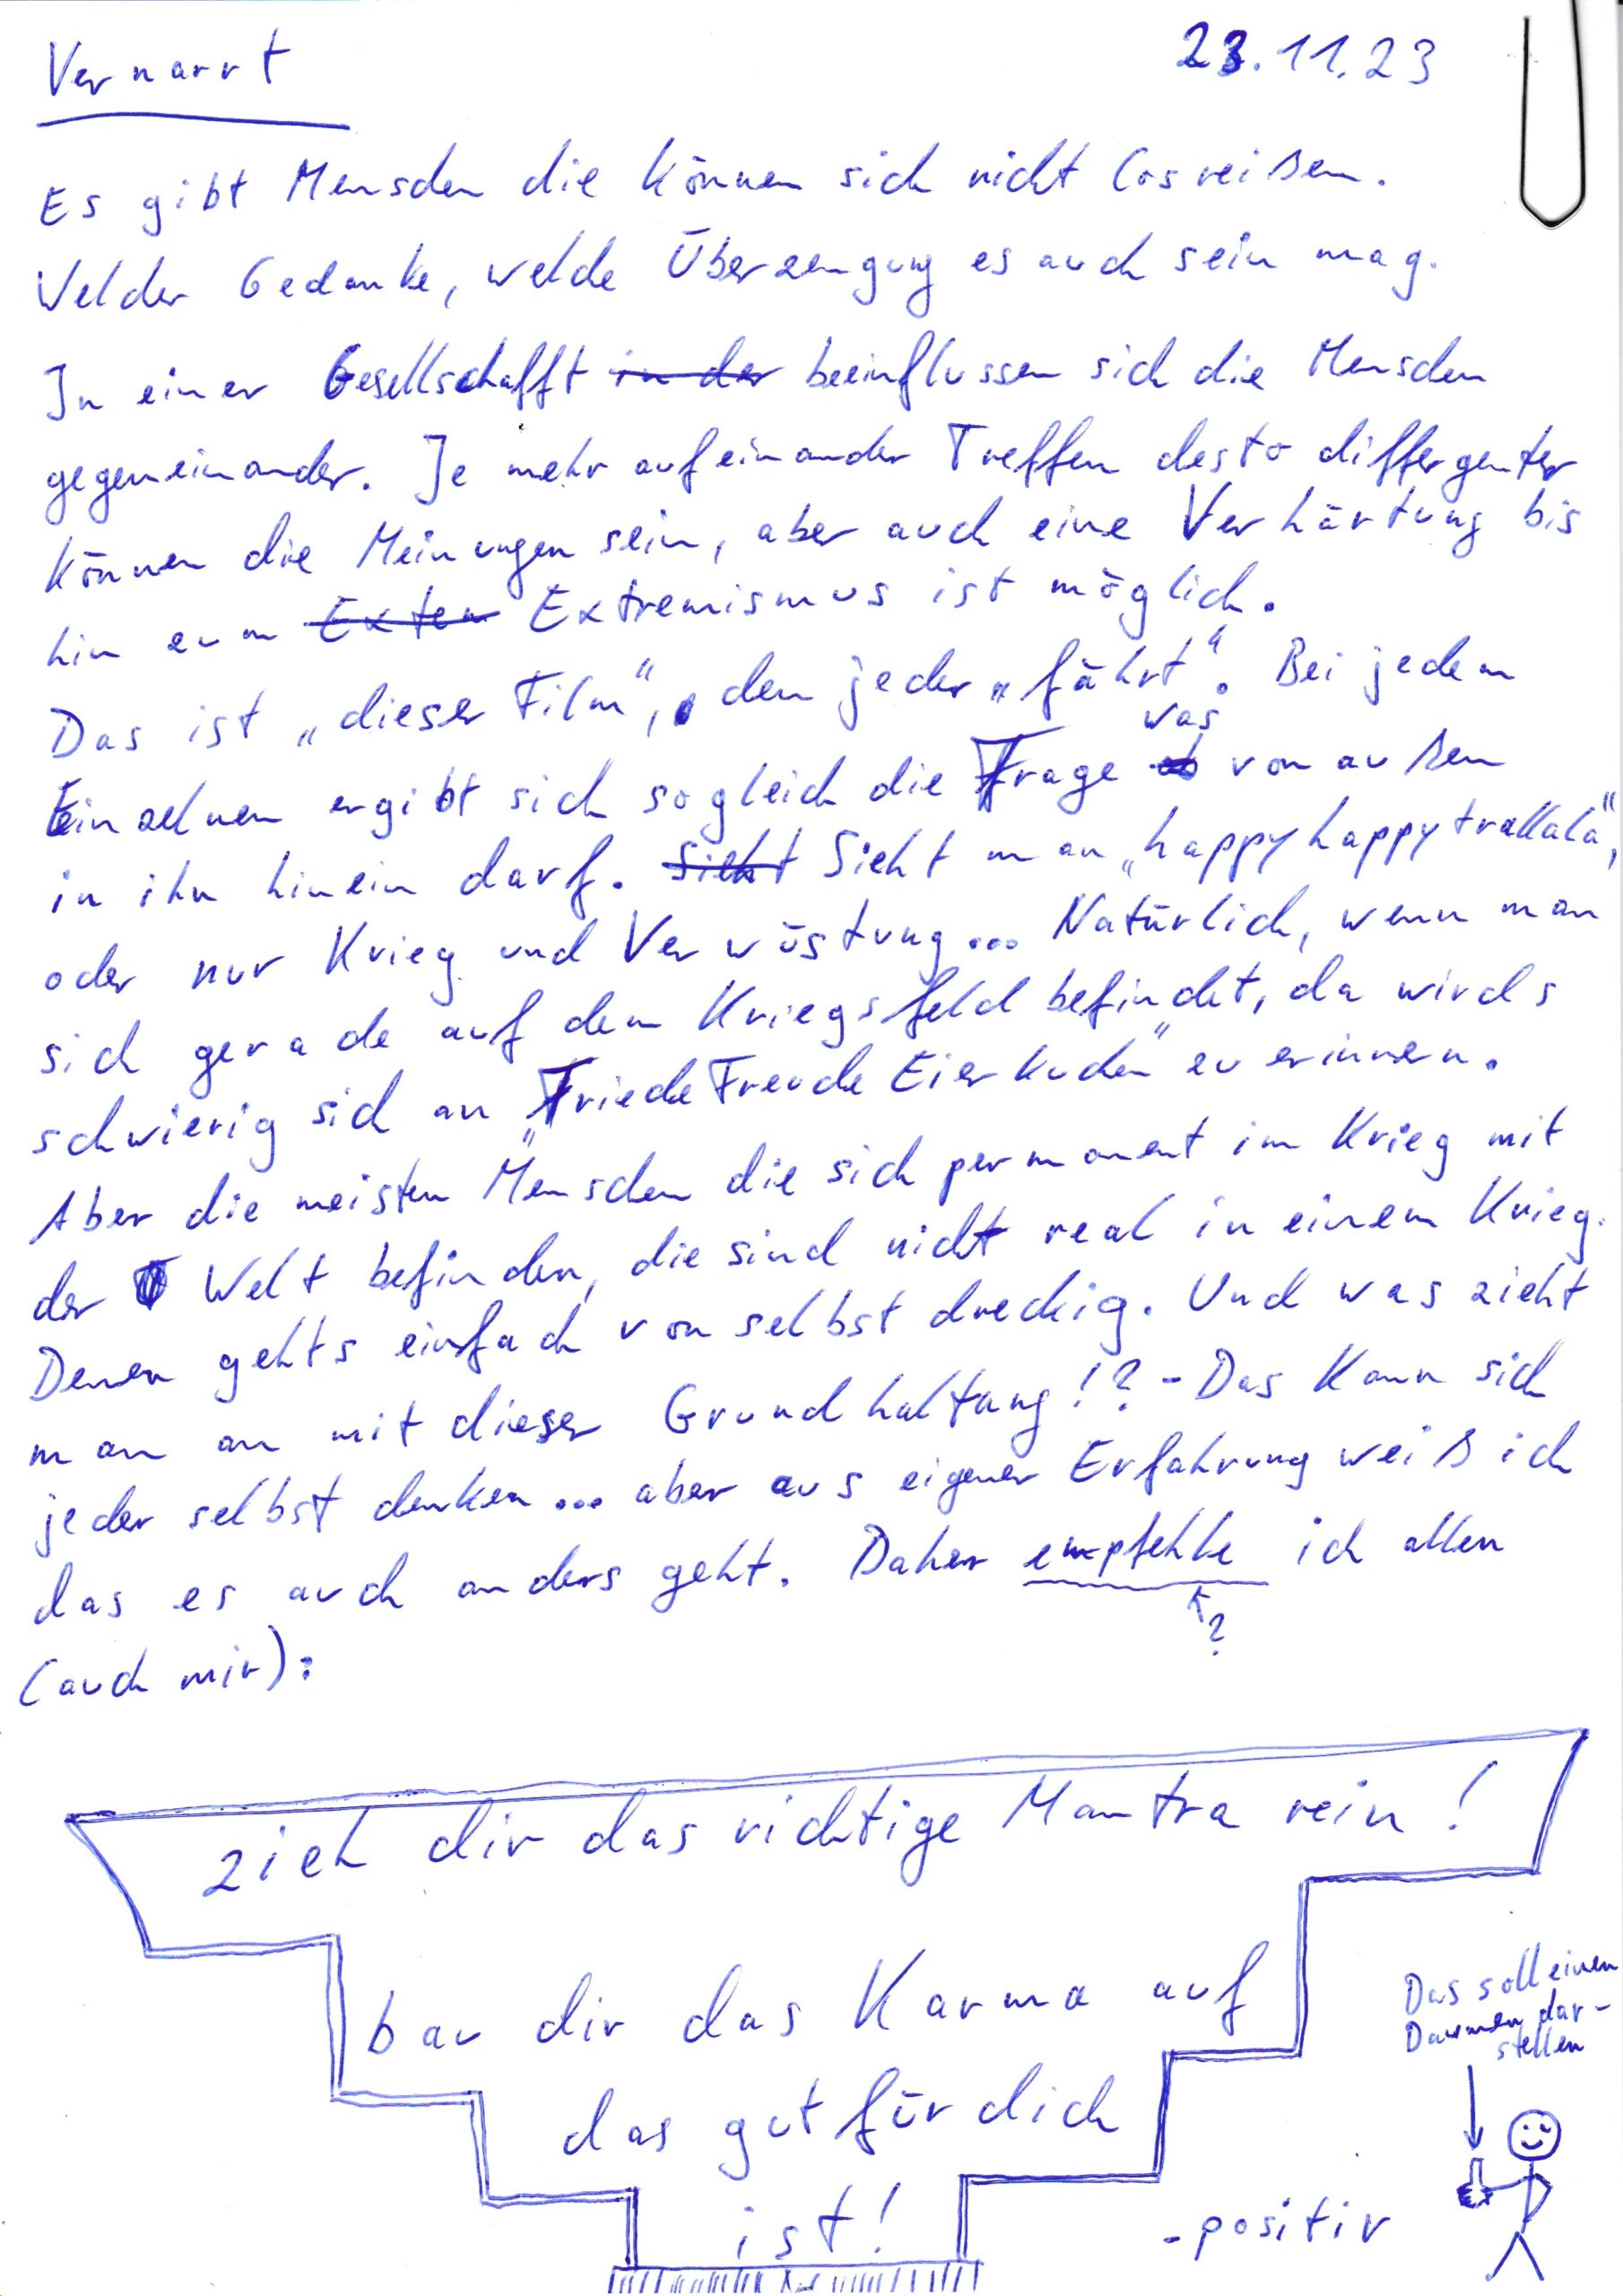 Vernarrt
23.11.23
Es gibt Menschen die können sich nicht losreißen.
Welcher Gedanke, welche Überzeugung es auch sein mag.
In einer Gesellschafft in der beeinflussen sich die Menschen
gegeneinander. Je mehr aufeinander Treffen desto differgenter
können die Meinungen sein, aber auch eine Verhärtung bis
hin zum Exten Extremismus ist möglich.
Das ist „dieser Film“, den jeder „fährt“. Bei jedem
was
Einzelnen ergibt sich sogleich die Frage ob von außen
in ihn hinein darf. Sieht Sieht man „happyhappytrallala“,
oder nur Krieg und Verwüstung... Natürlich, wenn man
sich gerade auf dem Kriegsfeld befindet, da wirds
schwierig sich an „Friede Freude Eierkuchen“ zu erinnern.
Aber die meisten Menschen die sich permanent im Krieg mit
der Welt befinden, die sind nicht real in einem Krieg.
Denen gehts einfach von selbst dreckig. Und was zieht
man an mit dieser Grundhaltung!? - Das kann sich
jeder selbst denken... aber aus eigener Erfahrung weiß ich
das es auch anders geht. Daher empfehle ich allen
?
(auch mir):
zieh dir das richtige Mantra rein!
bau dir das Karma auf
das gut für dich
ist!
Das soll einen
Daumen dar-
stellen
-positiv